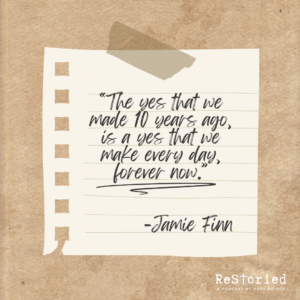 "The yes that we
made 10 years ago,
is a yes that we
make every day,
forever now."
-Jamie Finn
ReStoried
A PODCAST BY HOPE BRIDGE